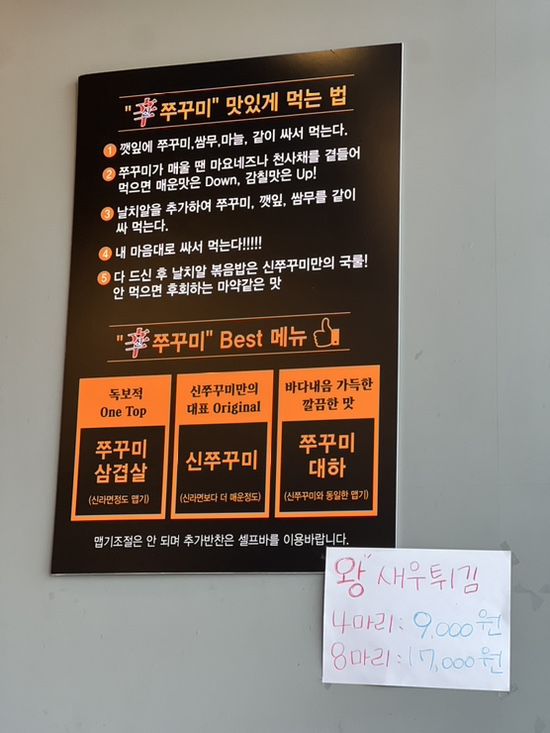 "辛쭈꾸미" 맛있게 먹는 법
1 깻잎에 쭈꾸미,쌈무,마늘, 같이 싸서 먹는다.
2 쭈꾸미가 매울 땐 마요네즈나 천사채를 곁들어
먹으면 매운맛은 Down, 감칠맛은 Up!
3 날치알을 추가하여 쭈꾸미, 깻잎, 쌈무를 같이
싸 먹는다.
4 내 마음대로 싸서 먹는다!!!!!
5 다 드신 후 날치알 볶음밥은 신쭈꾸미만의 국룰!
안 먹으면 후회하는 마약같은 맛
"辛쭈꾸미" Best 메뉴
독보적
One Top
쭈꾸미
삼겹살
(신라면정도 맵기)
신쭈꾸미만의
대표 Original
신쭈꾸미
(신라면보다 더 매운정도)
바다내음 가득한
깔끔한 맛
쭈꾸미
대하
(신쭈꾸미와 동일한 맵기)
맵기조절은 안 되며 추가반찬은 셀프바를 이용바랍니다.
왕" 새우튀김
4마리: 9,000원
8마리: 17,000원